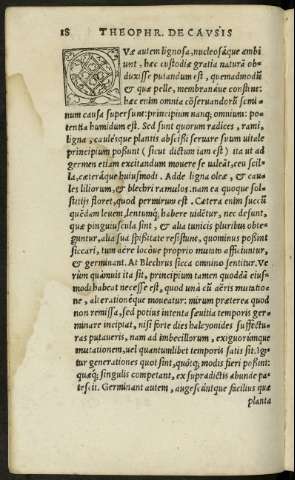 18 THEOPHR. DE CAVSIS
Quæ autem lignosa, nucleosáque ambi
unt, hæc custodiæ gratia naturā ob-
duxisse putandum est, quemadmodū
& quæ pelle, membranáue constāt:
hæc enim omnia cōseruandorū semi-
num causa supersunt: principium nanq; omnium: po-
tentia humidum est. Sed sunt quorum radices, rami,
ligna, caulésque plantis abscissi seruare suum uitale
principium possunt (sicut dictum iam est) ita ut ad
germen etiam excitandum mouere se ualeāt, ceu scil-
la, cæteráque huiusmodi. Adde ligna oleæ, & cau-
les liliorum, & blechri ramulos. nam ea quoque sol-
stitijs floret, quod permirum est. Cætera enim succū
quēdam leuem, lentumq; habere uidētur, nec desunt,
quæ pinguiuscula sint, & alia tunicis pluribus obte-
guntur, alia sua spissitate resistunt, quominus possint
siccari, tum aëre loci ue proprio mutuo afficiuntur,
& germinant. At Blechrus sicca omnino sentitur. Ve-
rùm quāuis ita sit, principium tamen quoddā eius-
modi habeat necesse est, quod unà cū aëris mutatio-
ne, alterationéque moueatur: mirum præterea quod
non remissa, sed potius intenta sæuitia temporis ger-
minare incipiat, nisi forte dies halcyonides suffectu-
ras putaueris, nam ad imbecillorum, exiguorúmque
mutationem, uel quantumlibet temporis satis sit. Igi-
tur generationes quot sint, quótq; modis fieri possint:
quæq; singulis competant, ex supradictis abunde pa-
tescit. Germinant autem, augescúntque facilius quæ
planta